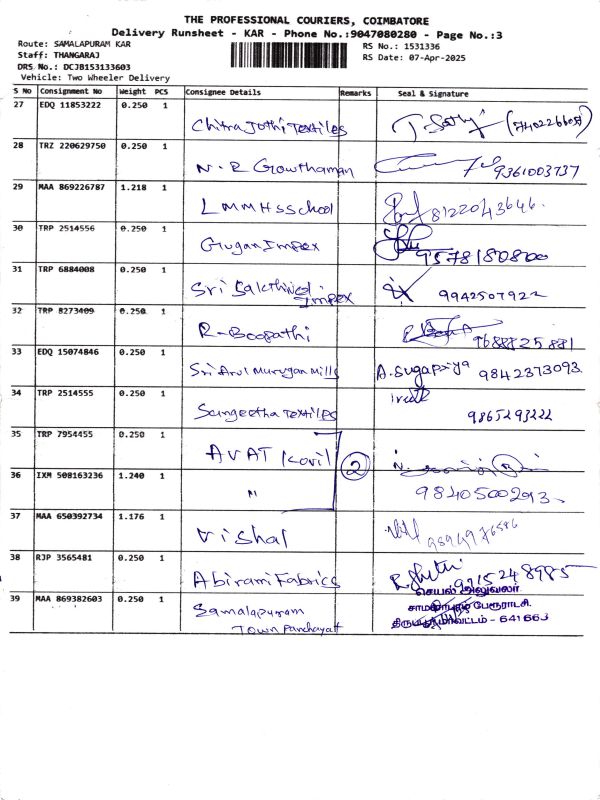 THE PROFESSIONAL COURIERS, COIMBATORE
Delivery Runsheet - KAR - Phone No.:9047080280 - Page No.:3
Route: SAMALAPURAM KAR
RS No.: 1531336
Staff: THANGARAJ
RS Date: 07-Apr-2025
DRS No.: DCJB153133603
Vehicle: Two Wheeler Delivery
S No Consignment No Weight PCS Consignee Details Remarks Seal & Signature
27 EDQ 11853222 0.250 1
Chitra Jothi Textiles
28 TRZ 220629750 0.250 1
N. R Growthaman 9361003737
29 MAA 869226787 1.218 1
LMMHSSchool 8122043646.
30 TRP 2514556 0.250 1
Gugan Impex 9578180800
31 TRP 6884008 0.250 1
Sri Sakthivel Impex 9942507922
32 TRP 8273409 0.250 1
R-Boopathi 9688825881
33 EDQ 15074846 0.250 1
Sri Arul Murugan Mills A.Sugapriya 9842373093
34 TRP 2514555 0.250 1
Sangeetha Textiles 9865293222
35 TRP 7954455 0.250 1
AVAT Kovil 2
36 IXM 508163236 1.240 1
" 9840500293.
37 MAA 650392734 1.176 1
Vishal
38 RJP 3565481 0.250 1
Abirami Fabrics 9715248985
செயல் அலுவலர்
39 MAA 869382603 0.250 1
Samalapuram
சாமளாபுரம் பேரூராட்சி.
Town Panchayatt
திருப்பூர் மாவட்டம் - 641663